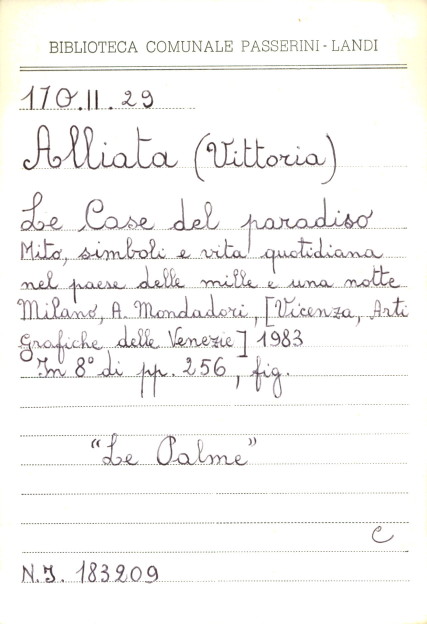 BIBLIOTECA COMUNALE PASSERINI - LANDI
170.II.29
Alliata (Vittoria)
Le Case del paradiso
Mito, simboli e vita quotidiana
nel paese delle mille e una notte
Milano, A. Mondadori, [Vicenza, Arti
Grafiche delle Venezie] 1983
In 8° di pp. 256, fig.
"Le Palme"
C
N.I. 183209